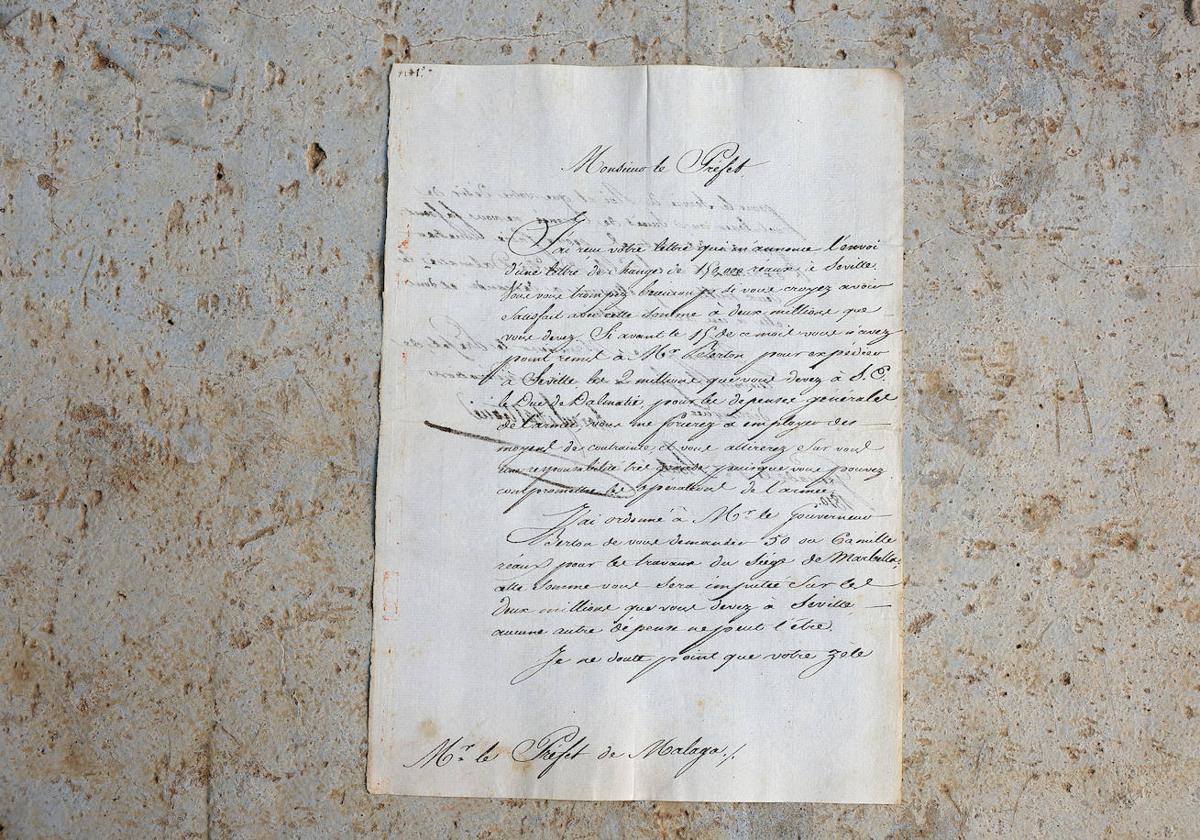 Monsieur le Préfet
J'ai reçu votre lettre qui m'annonce l'envoi
d'une lettre de change de 150,000 réaux, à Seville.
vous vous trompez beaucoup si vous croyez avoir
satisfait avec cette somme à deux millions que
vous devez. Si avant le 15 de ce mois vous n'avez
point remis à Mr Berton pour expédier
à Seville les 2 millions que vous devez à S. E.
le Duc de Dalmatie, pour les dépenses générales
de l'armée, vous me forcerez à employer des
moyens de contrainte, et vous attirerez sur vous
une responsabilité très grande, puisque vous pouvez
compromettre les opérations de l'armée.
J'ai ordonné à Mr le Gouverneur
Berton de vous demander 50 ou 60 mille
réaux pour les travaux du Siège de Marbella.
cette somme vous sera imputée sur les
deux millions que vous devez à Seville
aucune autre dépense ne peut l'être.
Je ne doute point que votre zèle
Mr le Préfet de Malaga./.